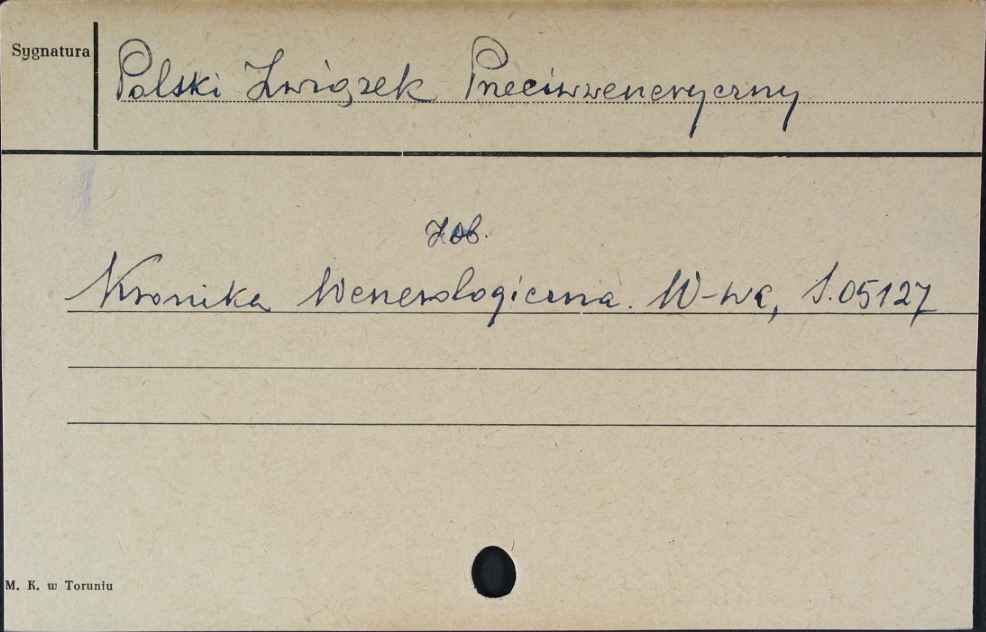 Sygnatura
Polski Związek Przeciwweneryczny
Zob.
Kronika Wenerologiczna. W-wa, S.05127
M. K. w Toruniu